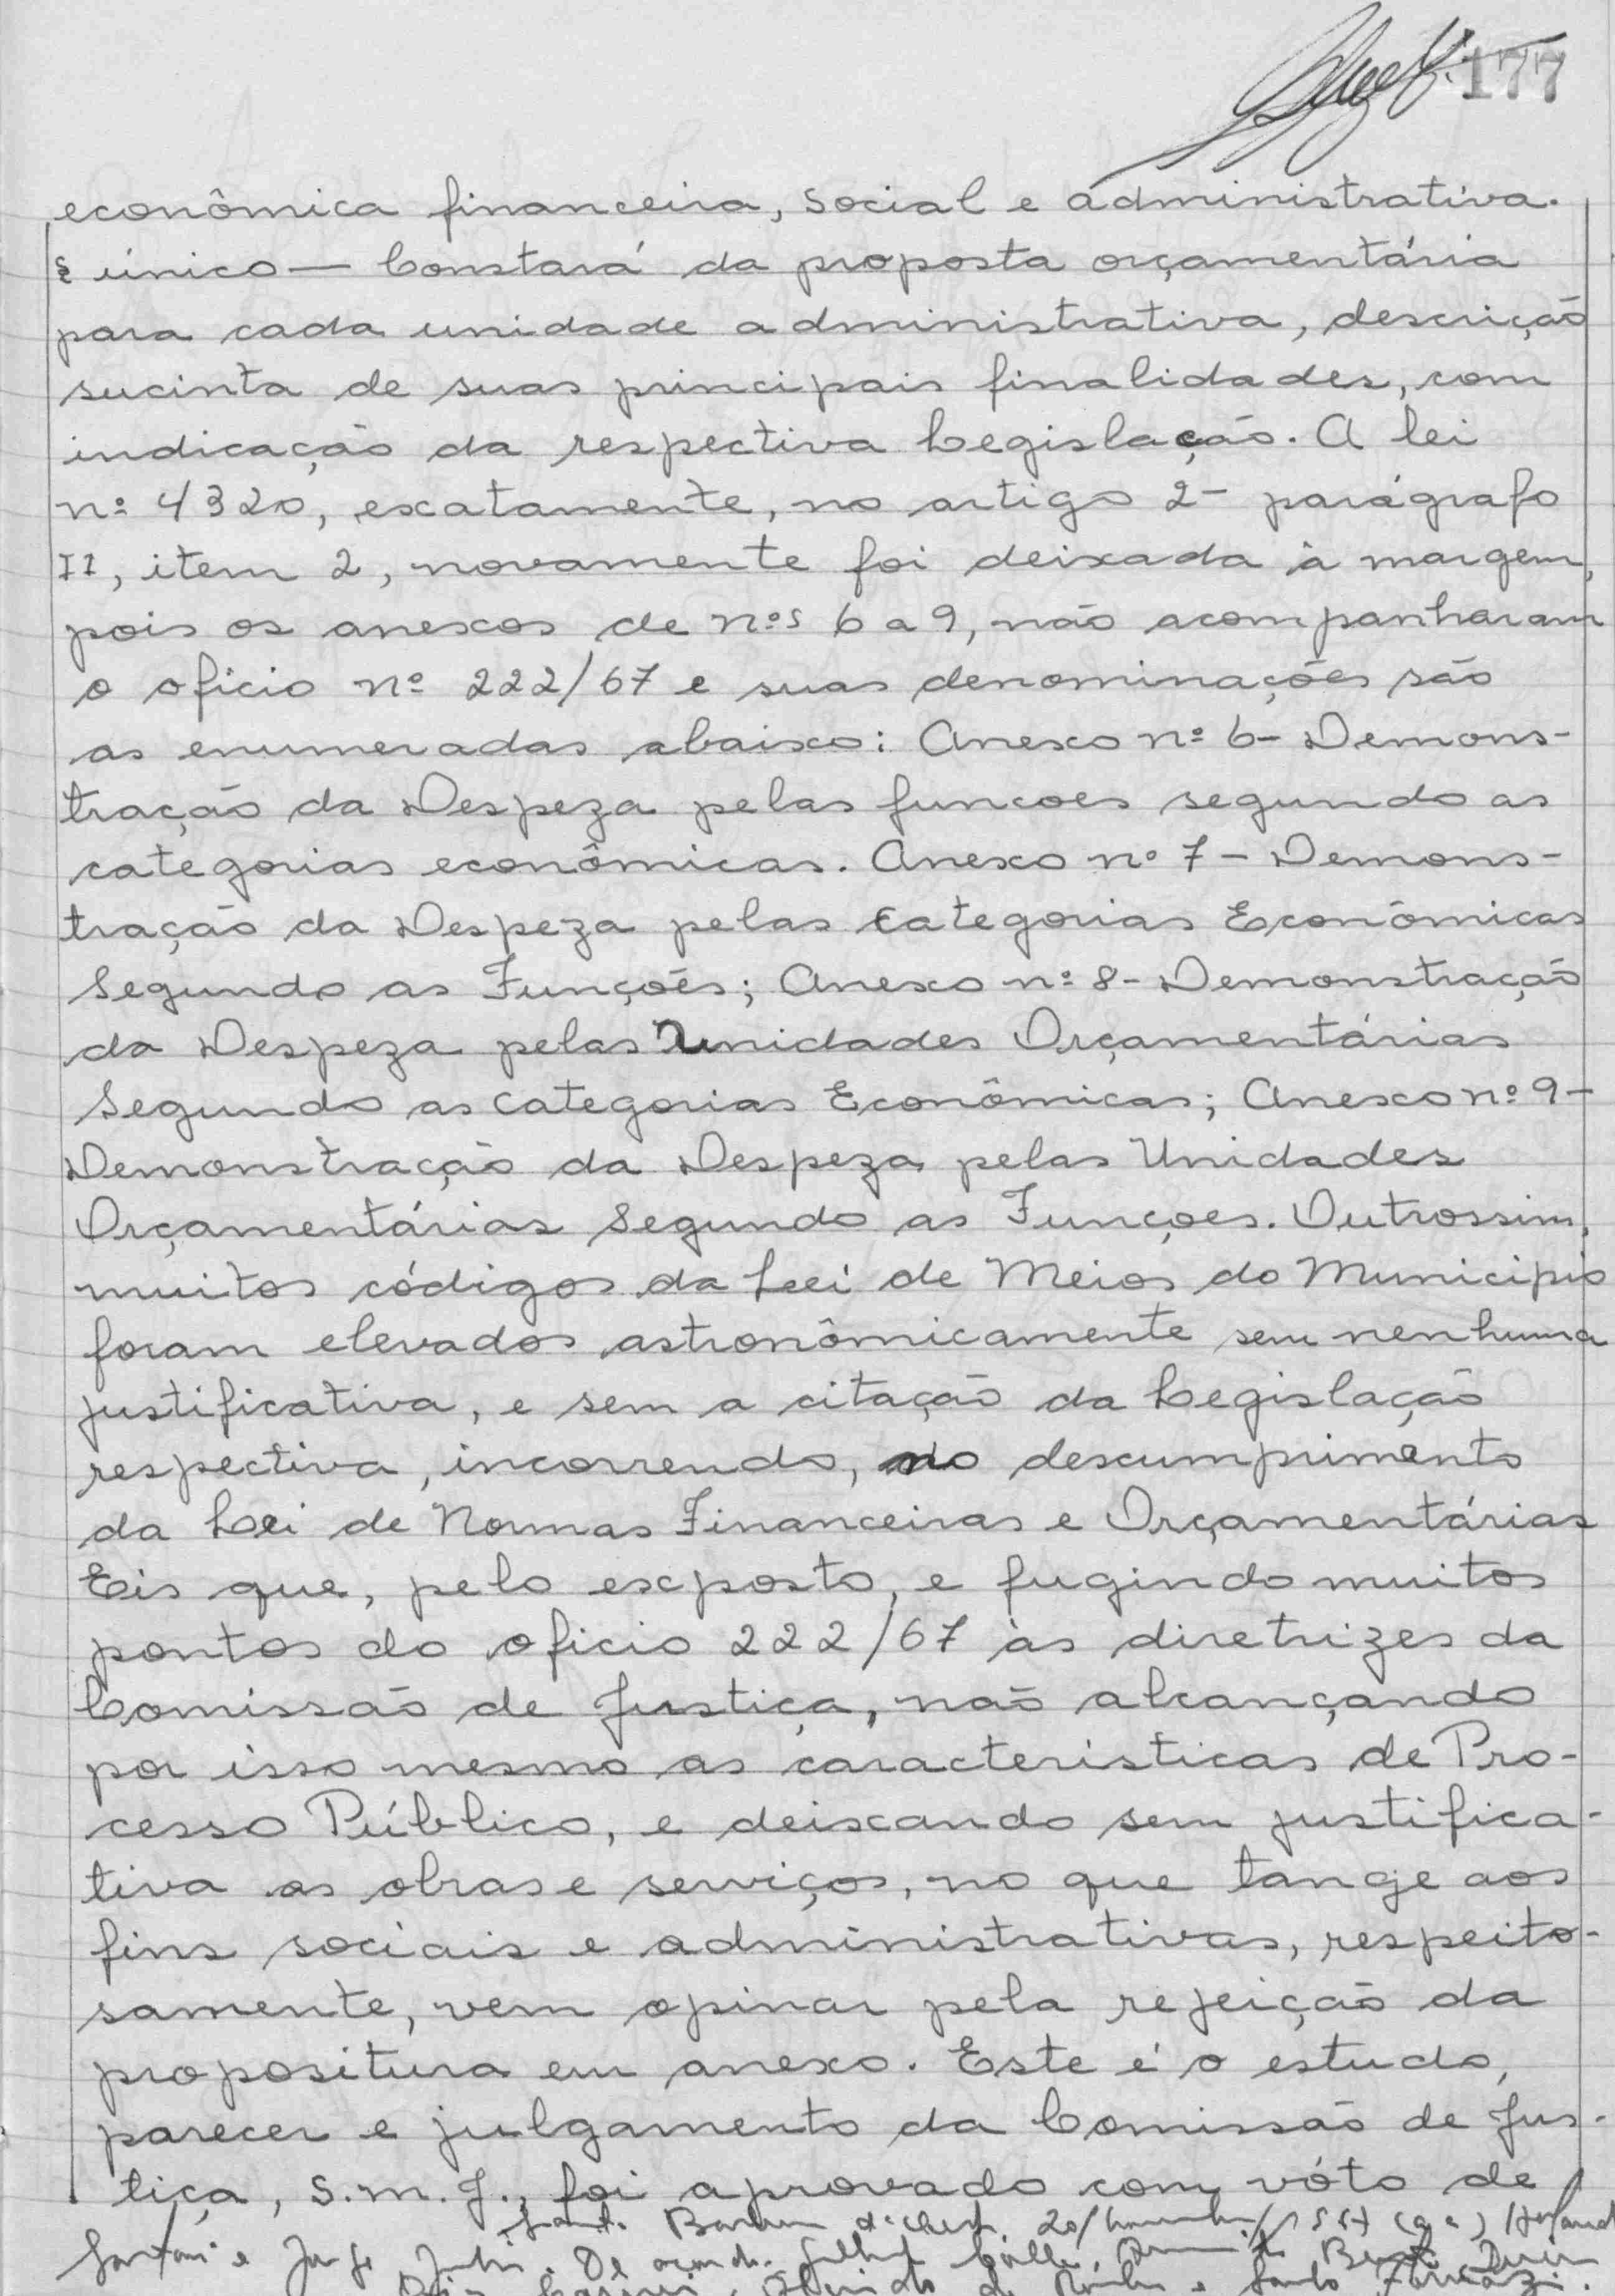 177
econômica financeira, social e administrativa.
§ único — Constará da proposta orçamentária
para cada unidade administrativa, descrição
sucinta de suas principais finalidades, com
indicação da respectiva Legislação. A lei
nº 4320, exatamente, no artigo 2- parágrafo
II, item 2, novamente foi deixada à margem,
pois os anexos de nºs 6 a 9, não acompanharam
o oficio nº 222/67 e suas denominações são
as enumeradas abaixo: Anexo nº 6- Demons-
tração da Despeza pelas funcoes segundo as
categorias econômicas. Anexo nº 7 - Demons-
tração da Despeza pelas categorias Econômicas
Segundo as Funções; Anexo nº 8- Demonstração
da Despeza pelas Unidades Orçamentárias
Segundo as categorias Econômicas; Anexo nº 9-
Demonstração da Despeza pelas Unidades
Orçamentárias Segundo as Funções. Outrossim,
muitos códigos da Lei de Meios do Municipio
foram elevados astronômicamente sem nenhuma
justificativa, e sem a citação da Legislação
respectiva, incorrendo, no descumprimento
da Lei de Normas Financeiras e Orçamentárias
Eis que, pelo exposto, e fugindo muitos
pontos do oficio 222/67 às diretrizes da
Comissão de Justiça, não alcançando
por isso mesmo as caracteristicas de Pro-
cesso Público, e deixando sem justifica-
tiva as obras e serviços, no que tange aos
fins sociais e administrativas, respeito-
samente, vem opinar pela rejeição da
propositura em anexo. Este é o estudo,
parecer e julgamento da Comissão de Jus-
tiça, S.m.J., foi aprovado com vóto de